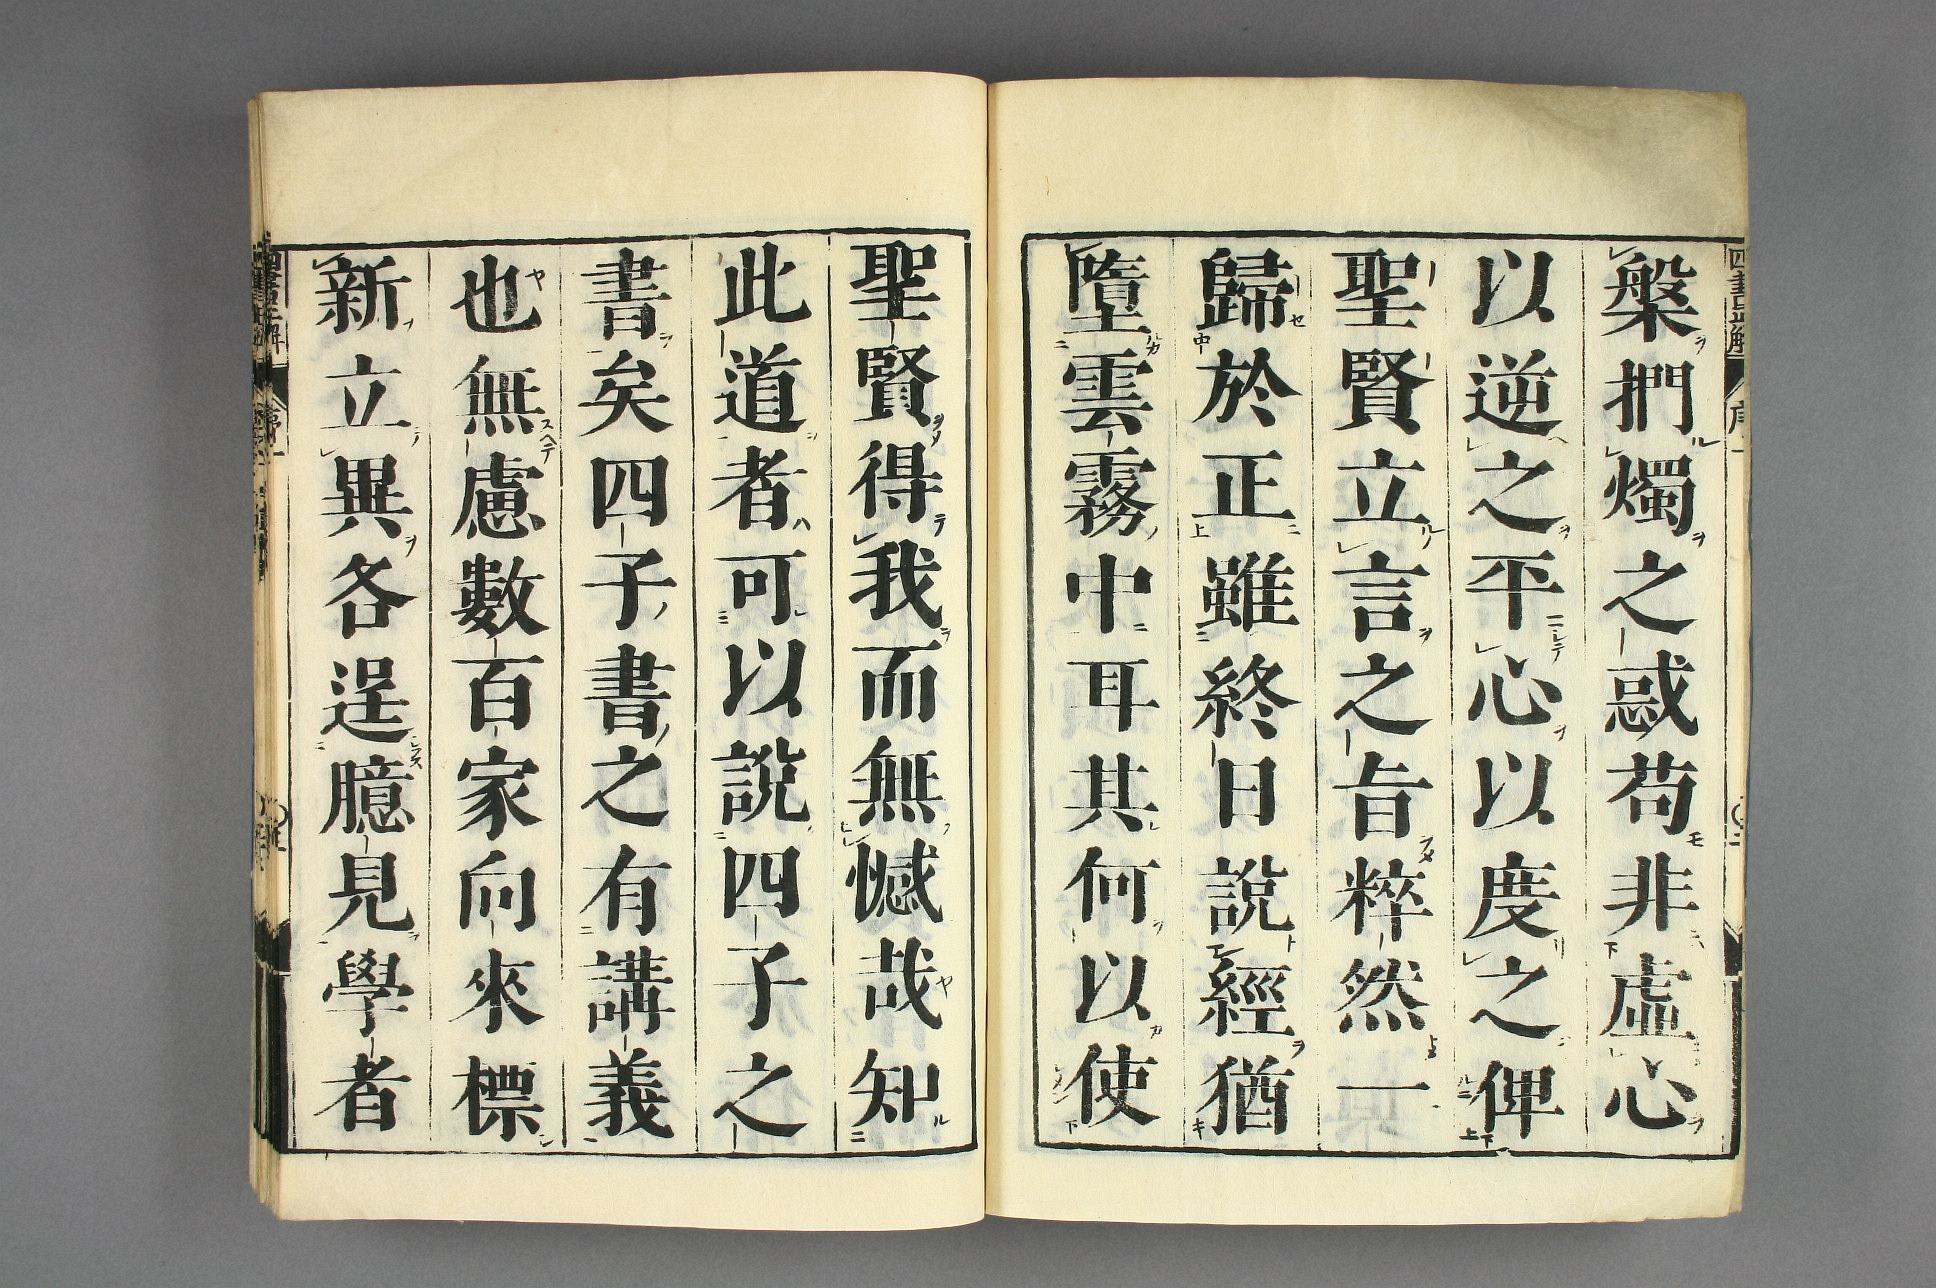 槃捫燭之惑苟非虛心
以逆之平心以度之俾
聖賢立言之旨粹然一
歸於正雖終日說經猶
墮雲霧中耳其何以使
聖賢得我而無憾哉知
此道者可以說四子之
書矣四子書之有講義
也無慮數百家向來標
新立異各逞臆見學者